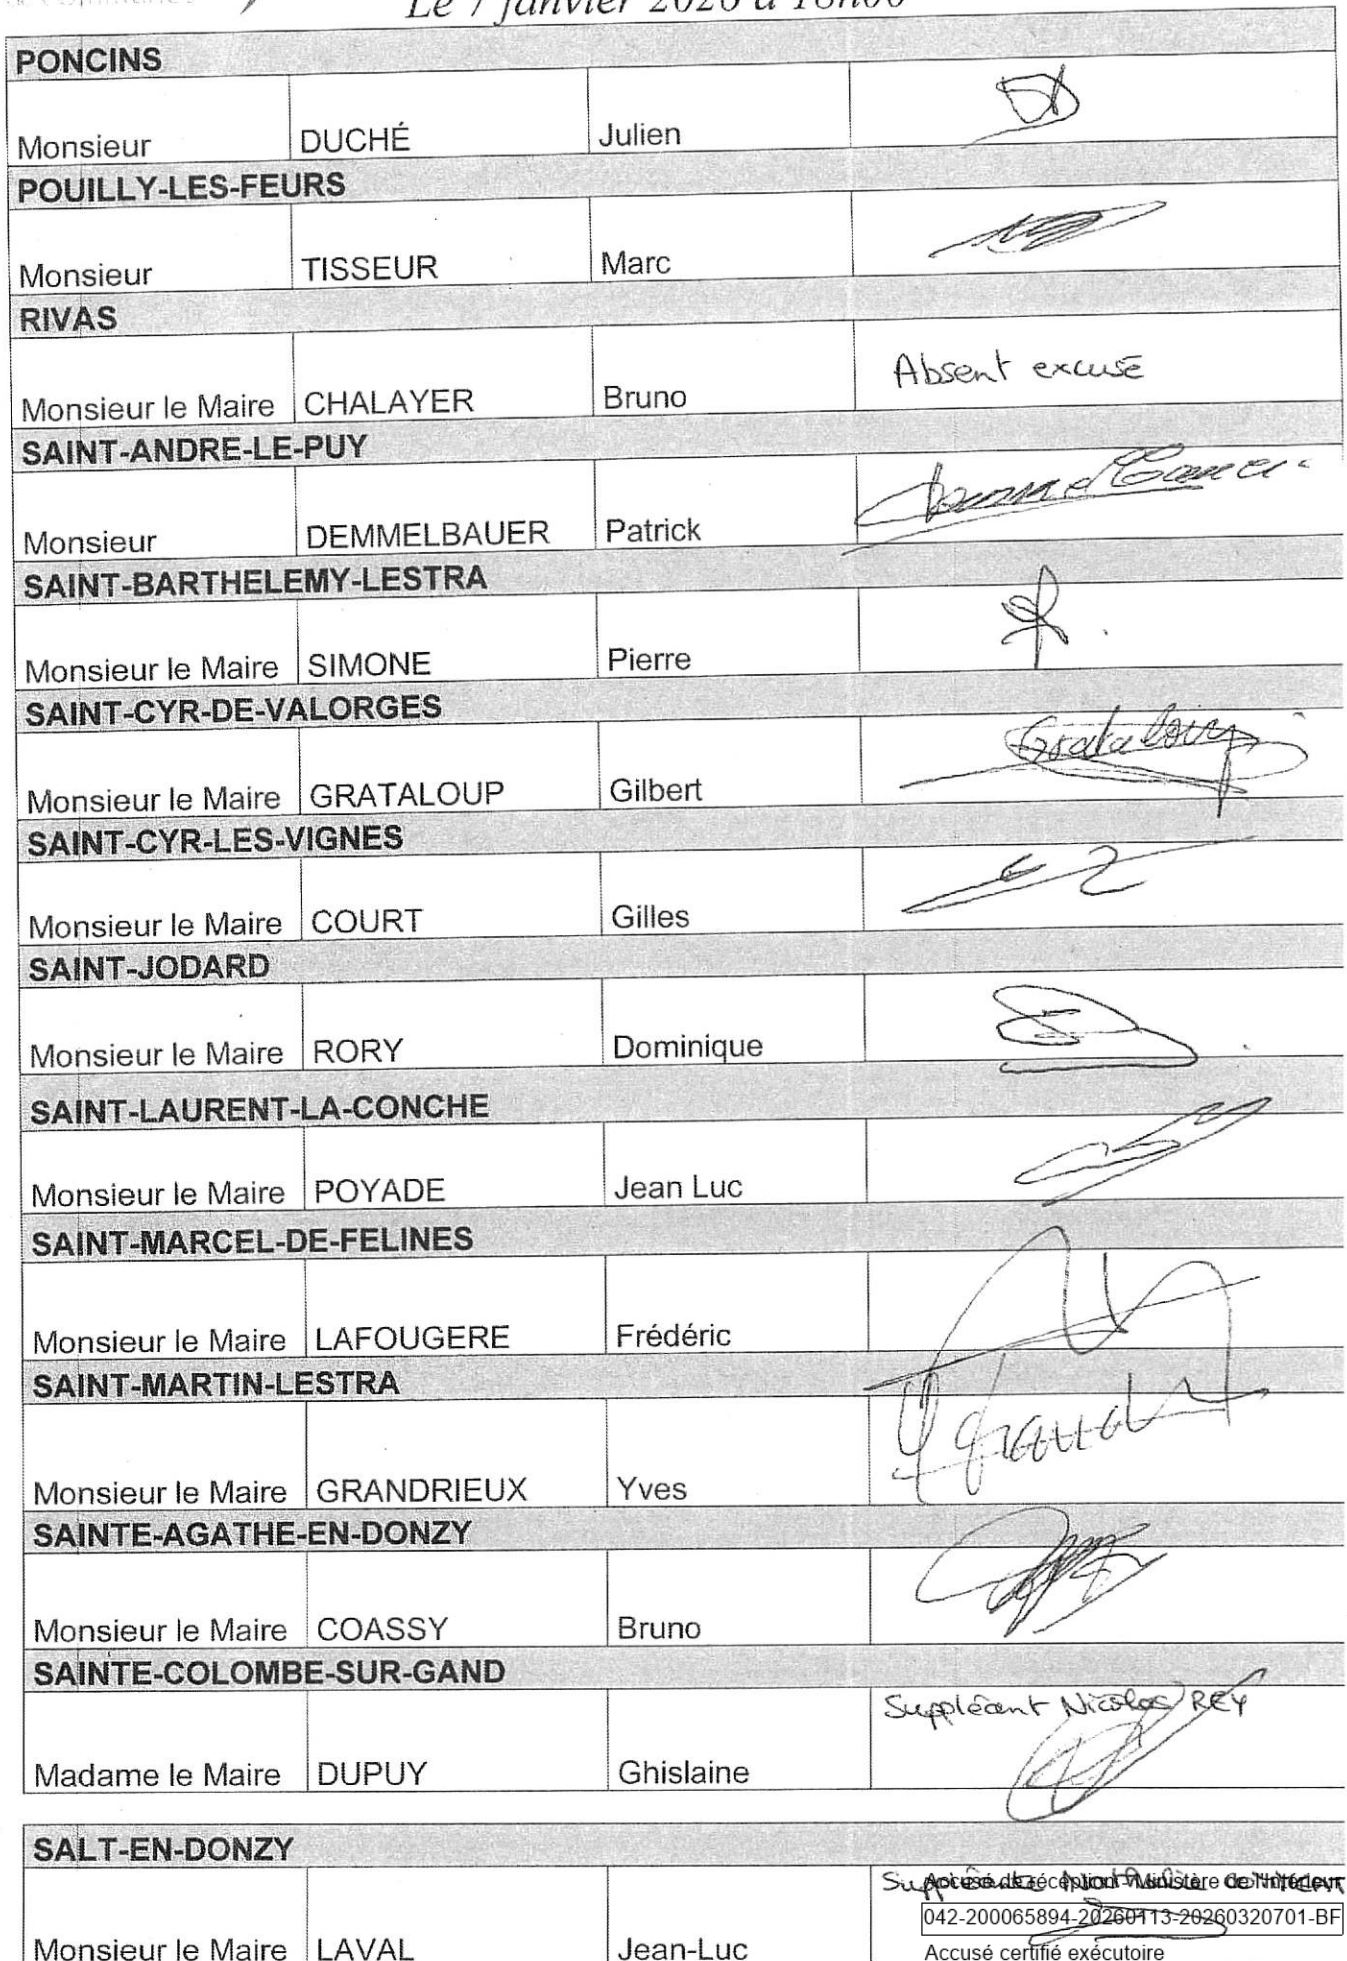 Le 7 janvier 2026 à 18h00
PONCINS
Monsieur DUCHÉ Julien
POUILLY-LES-FEURS
Monsieur TISSEUR Marc
RIVAS
Monsieur le Maire CHALAYER Bruno Absent excusé
SAINT-ANDRE-LE-PUY
Monsieur DEMMELBAUER Patrick
SAINT-BARTHELEMY-LESTRA
Monsieur le Maire SIMONE Pierre
SAINT-CYR-DE-VALORGES
Monsieur le Maire GRATALOUP Gilbert Grataloup
SAINT-CYR-LES-VIGNES
Monsieur le Maire COURT Gilles
SAINT-JODARD
Monsieur le Maire RORY Dominique
SAINT-LAURENT-LA-CONCHE
Monsieur le Maire POYADE Jean Luc
SAINT-MARCEL-DE-FELINES
Monsieur le Maire LAFOUGERE Frédéric
SAINT-MARTIN-LESTRA
Monsieur le Maire GRANDRIEUX Yves
SAINTE-AGATHE-EN-DONZY
Monsieur le Maire COASSY Bruno
SAINTE-COLOMBE-SUR-GAND
Suppléant Nicolas REY
Madame le Maire DUPUY Ghislaine
SALT-EN-DONZY
Suppléante Nathalie
Accusé de réception - Ministère de l'Intérieur
042-200065894-20260113-20260320701-BF
Monsieur le Maire LAVAL Jean-Luc Accusé certifié exécutoire